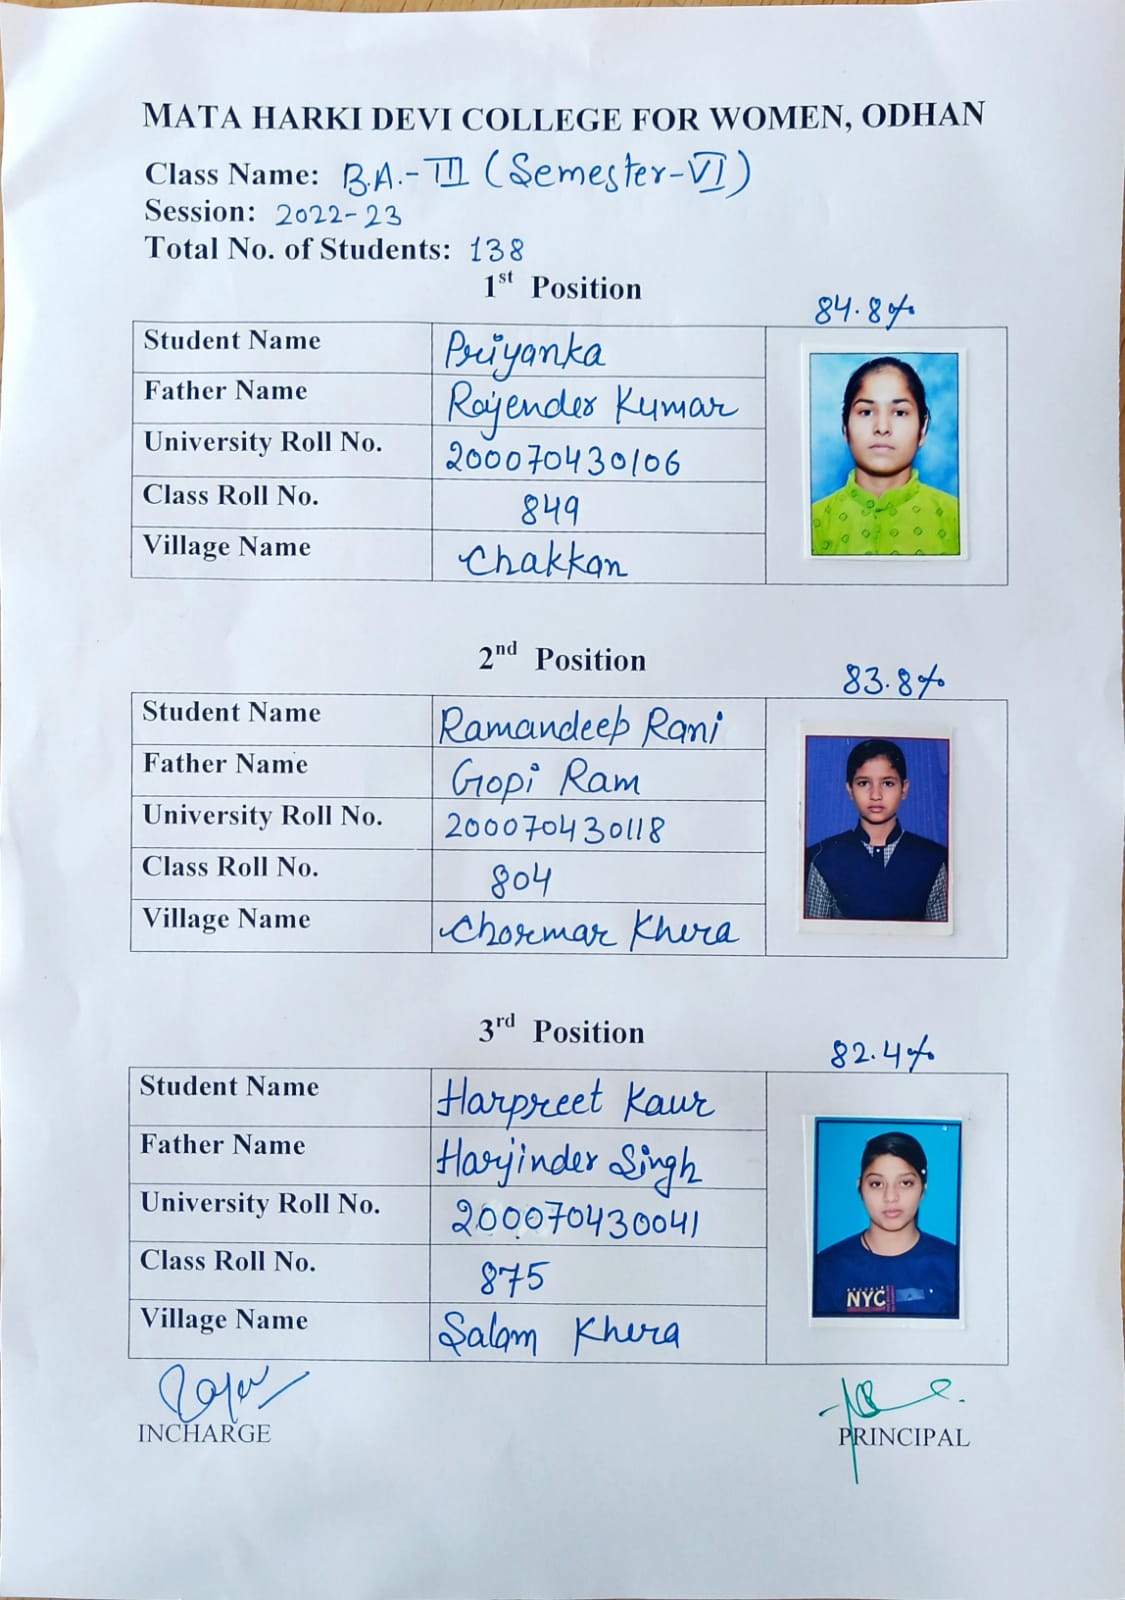 MATA HARKI DEVI COLLEGE FOR WOMEN, ODHAN
Class Name: B.A.-III (Semester-VI)
Session: 2022-23
Total No. of Students: 138
1st Position
84.8%
Student Name Priyanka
Father Name Rajender Kumar
University Roll No. 200070430106
Class Roll No. 849
Village Name Chakkan
2nd Position
83.8%
Student Name Ramandeep Rani
Father Name Gopi Ram
University Roll No. 200070430118
Class Roll No. 804
Village Name Chormar Khera
3rd Position
82.4%
Student Name Harpreet Kaur
Father Name Harjinder Singh
University Roll No. 200070430041
Class Roll No. 875
Village Name Salam Khera
NYC
INCHARGE
PRINCIPAL